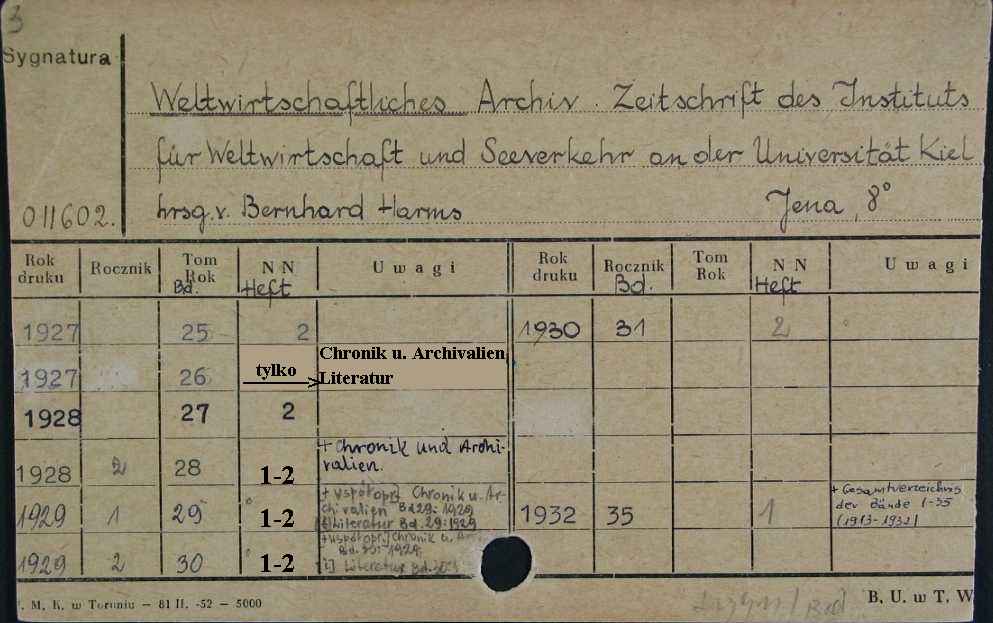 3
Sygnatura
Weltwirtschaftliches Archiv. Zeitschrift des Instituts
für Weltwirtschaft und Seeverkehr an der Universität Kiel
011602. hrsg. v. Bernhard Harms Jena, 8°
Rok druku Rocznik Tom Rok Bd. NN Heft Uwagi Rok druku Rocznik Bd. Tom Rok NN Heft Uwagi
1927 25 2 1930 31 2
1927 26 tylko Chronik u. Archivalien
Literatur
1928 27 2
1928 2 28 1-2 + Chronik und Archi-
valien.
1929 1 29 1-2 + współopr. Chronik u. Ar-
chivalien Bd 29: 1929
Literatur Bd. 29: 1929
1932 35 1 + Gesamtverzeichnis
der Bände 1-35
(1913-1932)
1929 2 30 1-2 + współopr. Chronik u.
Literatur Bd. 30
M. K. w Toruniu – 81 II. -52 – 5000
B. U. w T. W